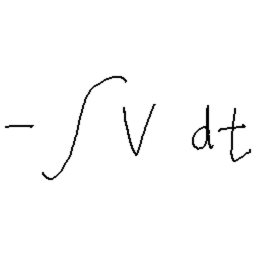 -∫V dt